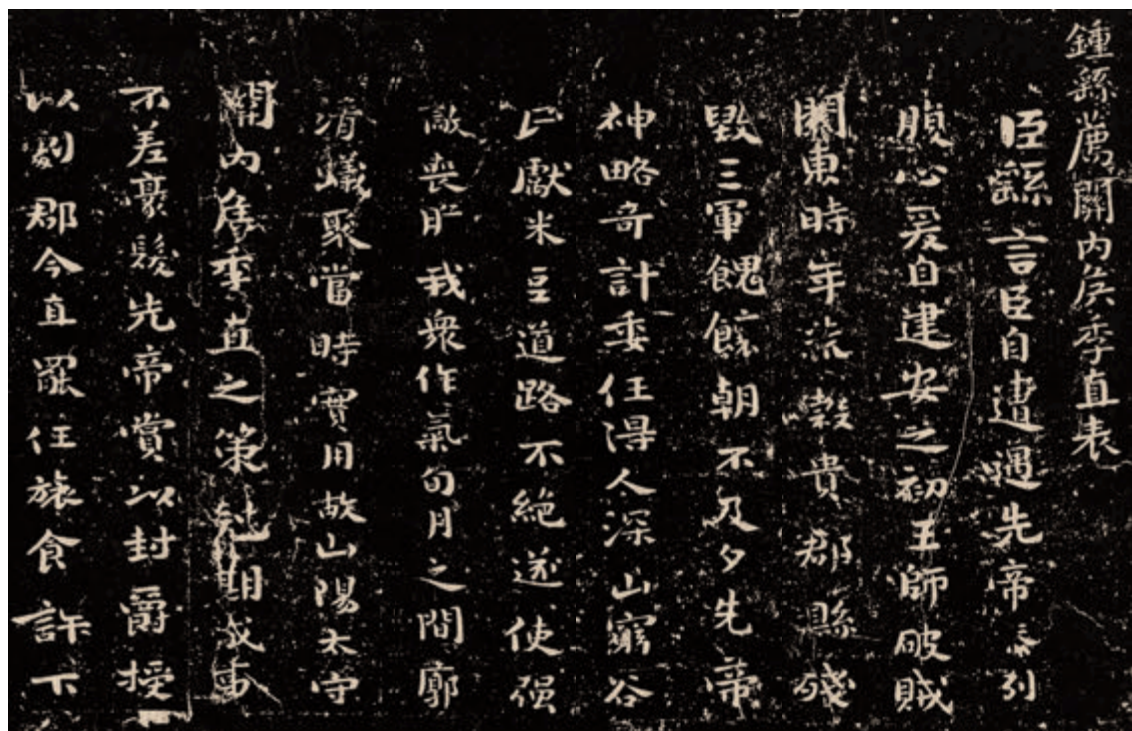 鍾繇薦關內侯季直表
臣繇言臣自遭遇先帝忝列
腹心爰自建安之初王師破賊
關東時年荒穀貴郡縣殘
毀三軍餽饟朝不及夕先帝
神略奇計委任得人深山窮谷
民獻米豆道路不絕遂使强
敵喪膽我衆作氣旬月之間廓
清蟻聚當時實用故山陽太守
關內侯季直之策剋期成事
不差豪髮先帝賞以封爵授
以劇郡今直罷任旅食許下